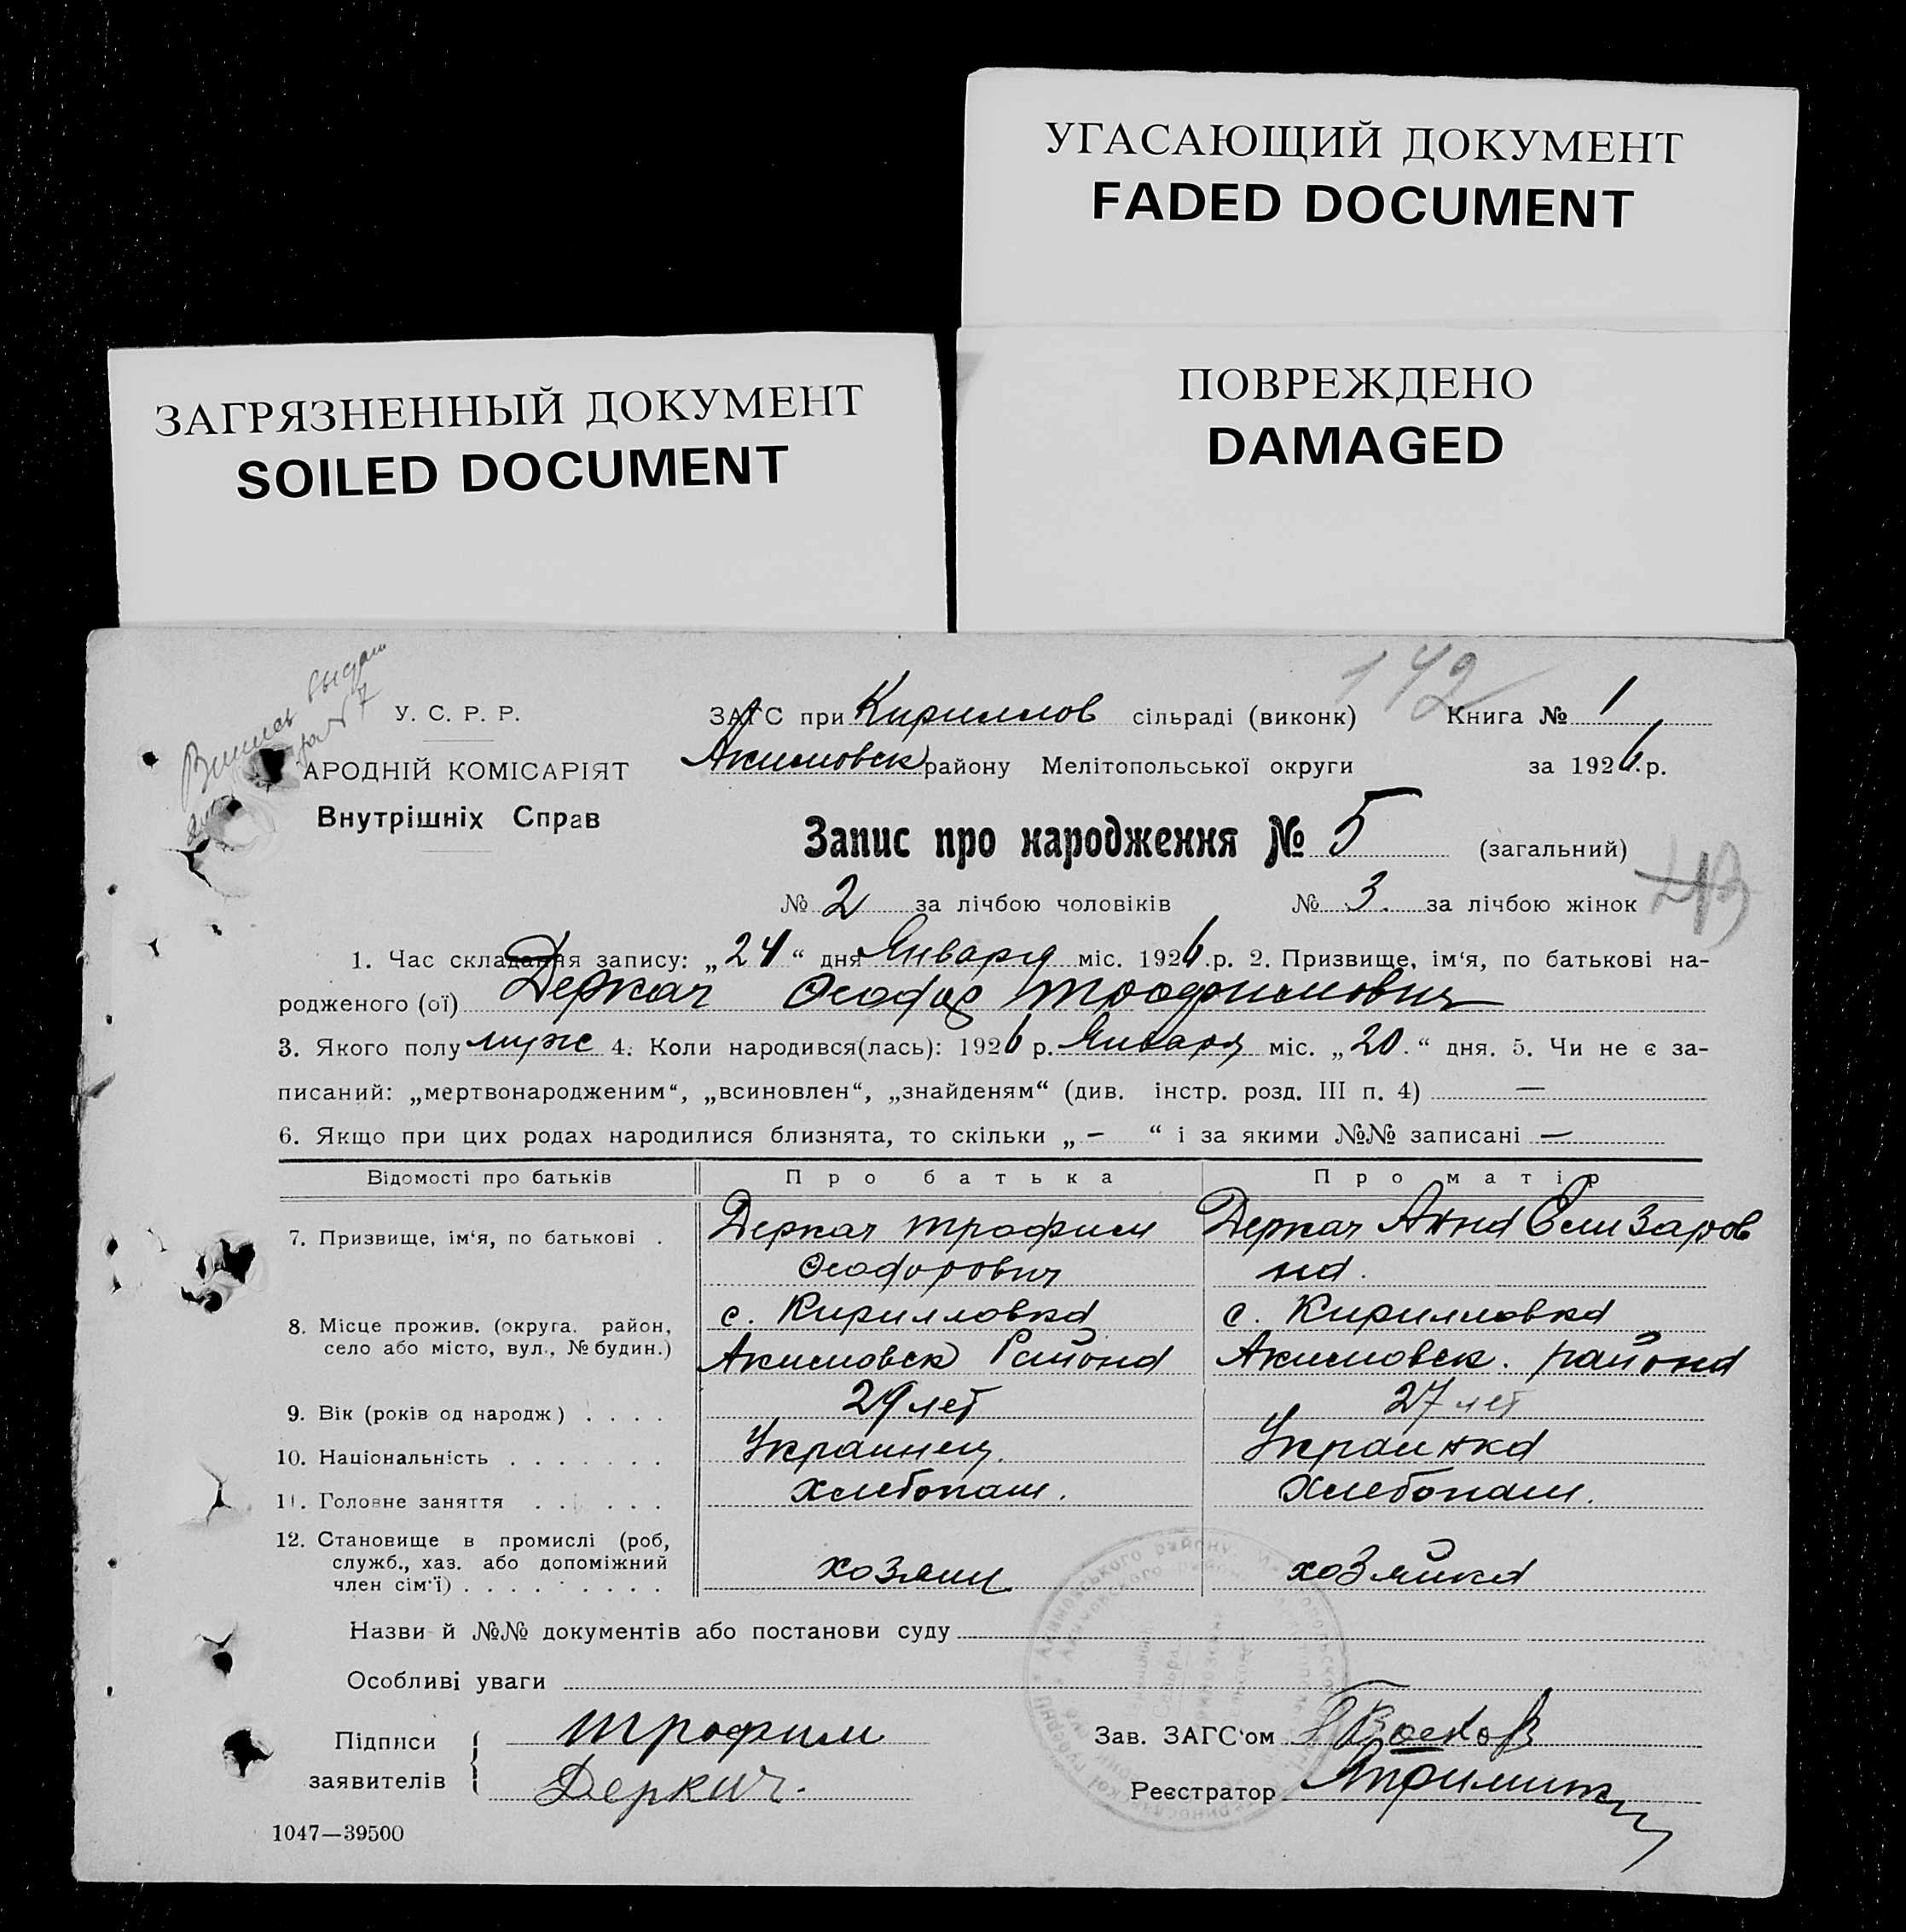 УГАСАЮЩИЙ ДОКУМЕНТ
FADED DOCUMENT
ЗАГРЯЗНЕННЫЙ ДОКУМЕНТ
SOILED DOCUMENT
ПОВРЕЖДЕНО
DAMAGED
142
У. С. Р. Р.
АРОДНІЙ КОМІСАРІЯТ
Внутрішніх Справ
ЗАГС при Кириллов сільраді (виконк) Книга № 1
Акимовск району Мелітопольської округи за 1926 р.
Запис про народження № 5 (загальний)
№ 2 за лічбою чоловіків № 3. за лічбою жінок
1. Час складання запису: „24“ дня Января міс. 1926.р. 2. Призвище, ім‘я, по батькові на-
родженого (ої) Деркач Феодор Трофимович
3. Якого полу муж 4. Коли народився(лась): 1926 р. Января міс. „20.“ дня. 5. Чи не є за-
писаний: „мертвонародженим“, „всиновлен“, „знайденям“ (див. інстр. розд. III п. 4) —
6. Якщо при цих родах народилися близнята, то скільки „ – “ і за якими №№ записані —
Відомості про батьків Про батька Про матір
7. Призвище, ім‘я, по батькові . Деркач Трофим Деркач Анна Елизаров
Феодорович на.
8. Місце прожив. (округа. район, село або місто, вул., № будин.) с. Кирилловка с. Кирилловка
Акимовск Района Акимовск. района
9. Вік (років од народж) . . . . 29 лет 27 лет
10. Національність . . . . . . . Украинец. Украинка
11. Головне заняття . . . . . . Хлебопаш. Хлебопаш.
12. Становище в промислі (роб, служб., хаз. або допоміжний член сім‘ї) . . . . . . . . . хозяин хозяйка
Назви й №№ документів або постанови суду
Особливі уваги
Підписи заявителів Трофим
Деркач.
Зав. ЗАГС‘ом
Реєстратор
1047—39500